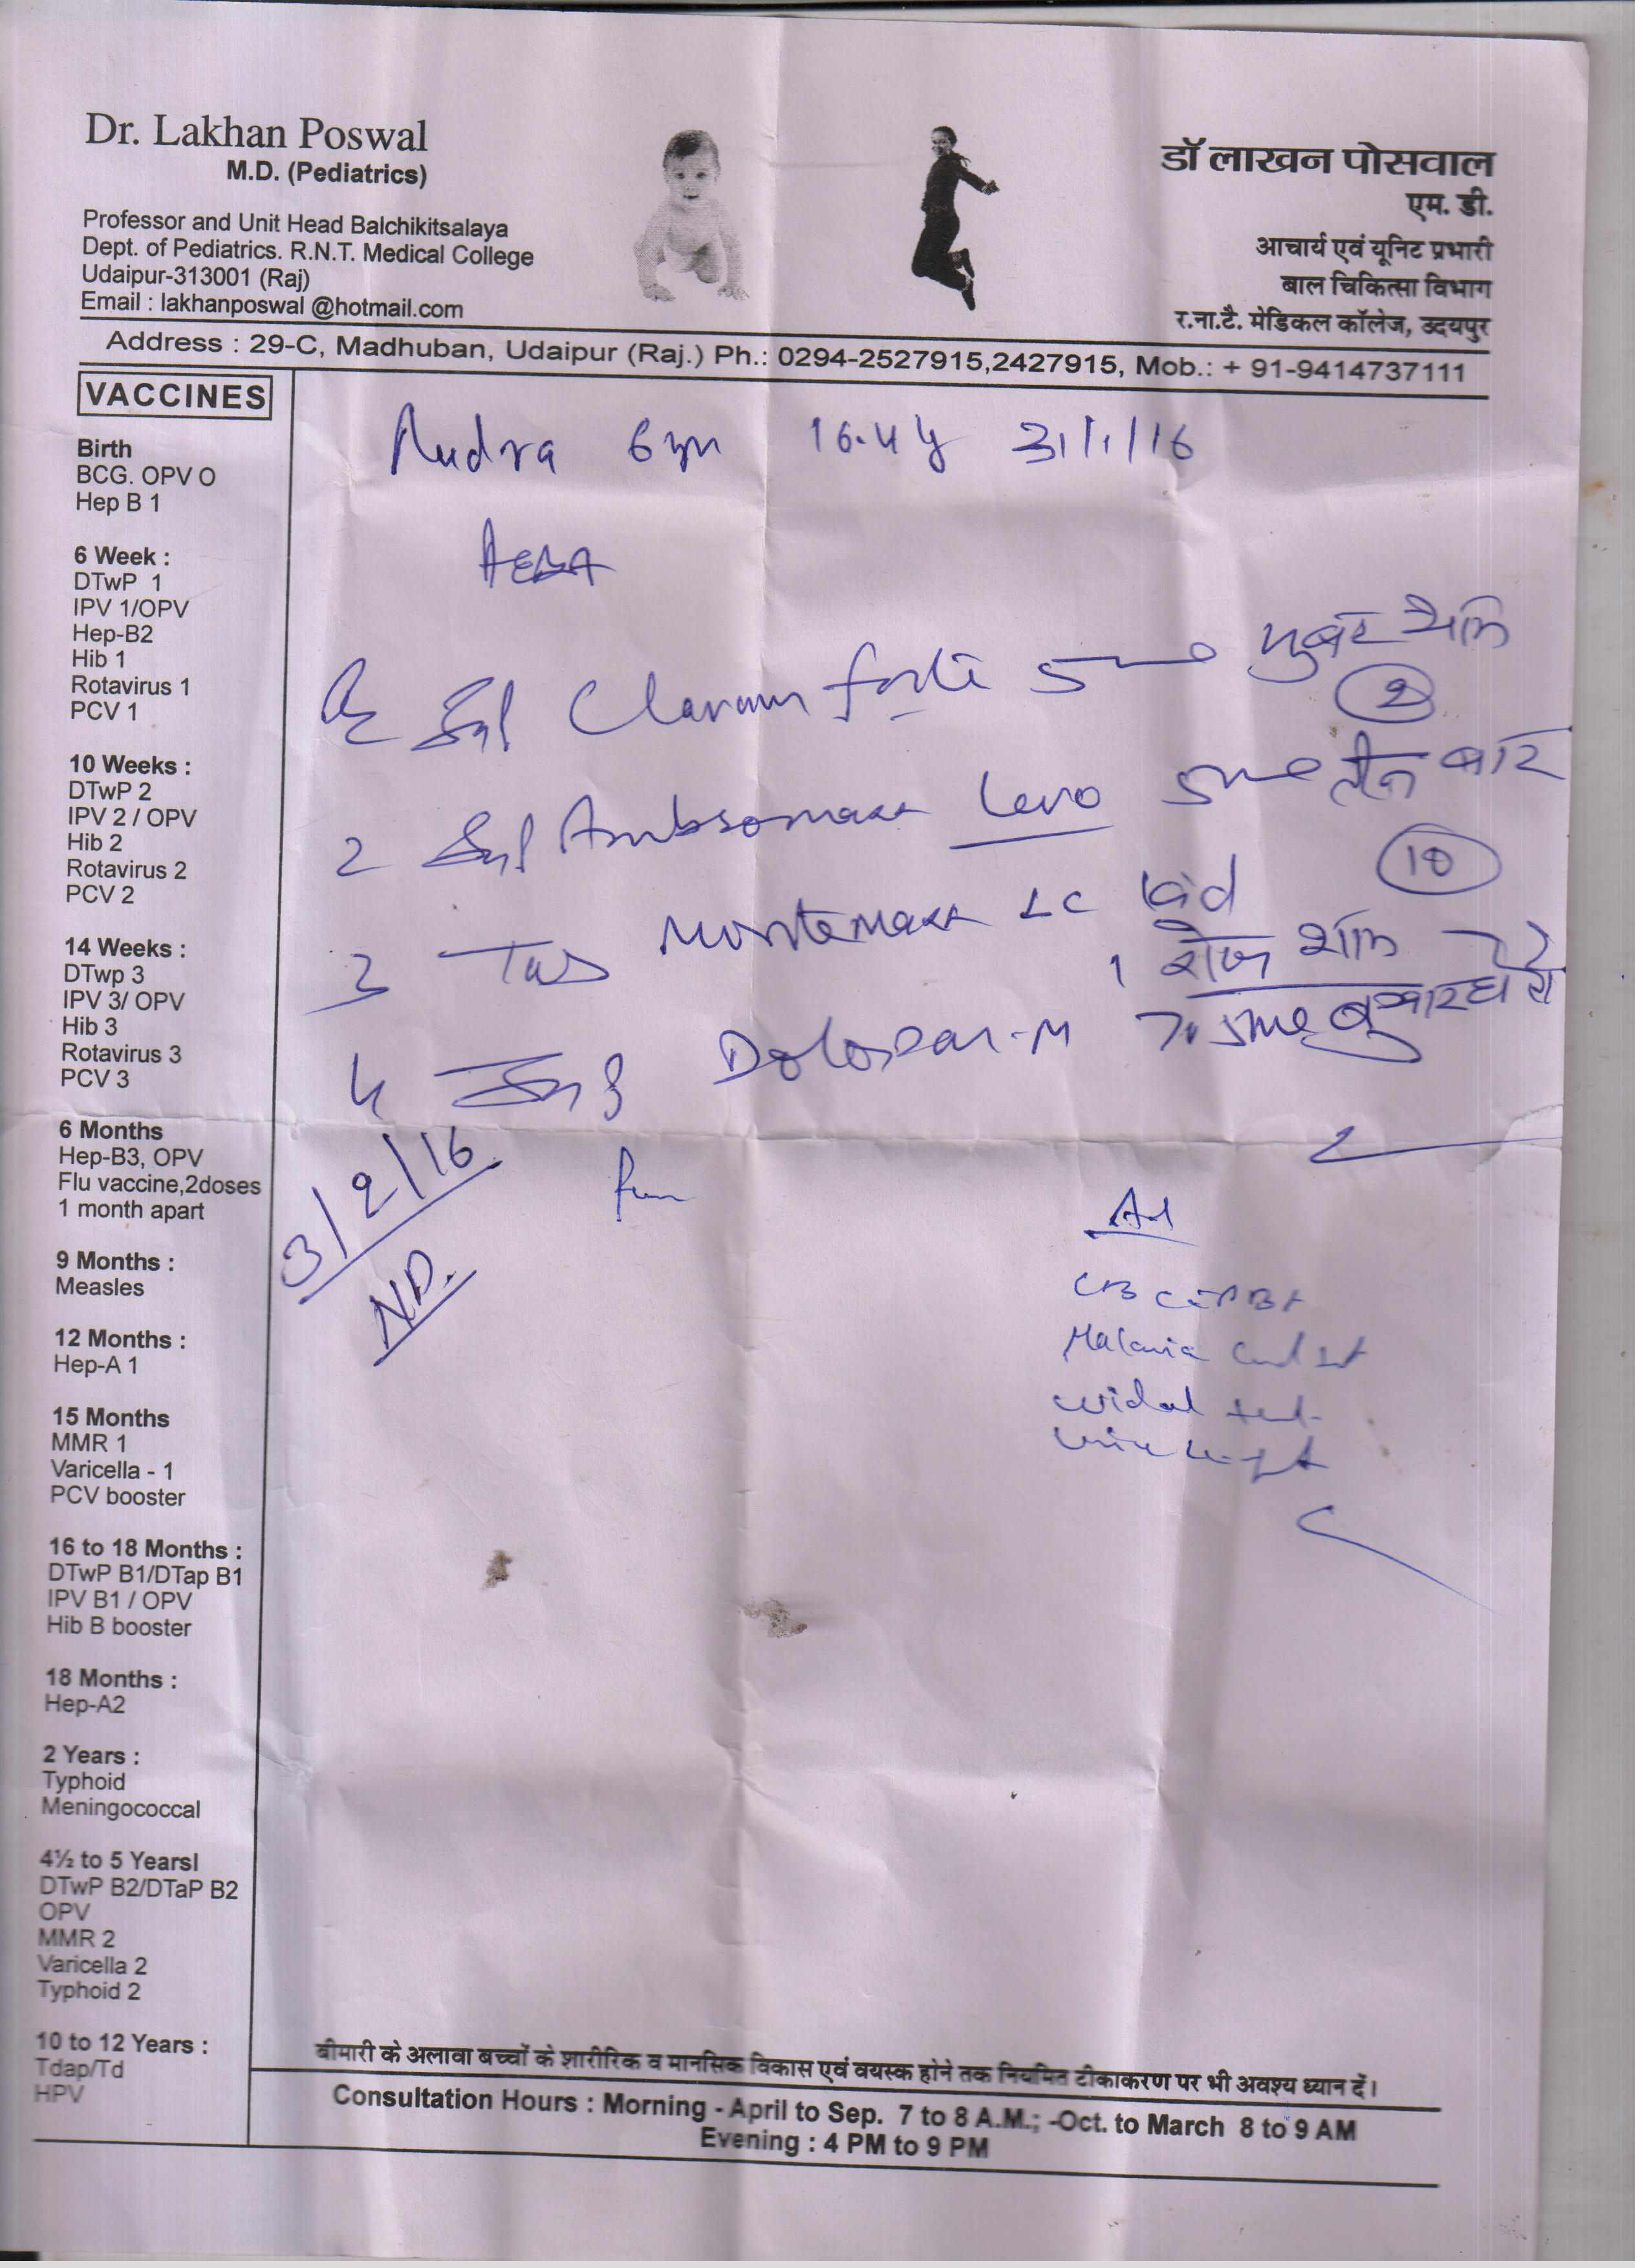 Dr. Lakhan Poswal
M.D. (Pediatrics)
Professor and Unit Head Balchikitsalaya
Dept. of Pediatrics. R.N.T. Medical College
Udaipur-313001 (Raj)
Email : lakhanposwal @hotmail.com
डॉ लाखन पोसवाल
एम. डी.
आचार्य एवं यूनिट प्रभारी
बाल चिकित्सा विभाग
र.ना.टै. मेडिकल कॉलेज, उदयपुर
Address : 29-C, Madhuban, Udaipur (Raj.) Ph.: 0294-2527915,2427915, Mob.: + 91-9414737111
VACCINES
Birth
BCG. OPV O
Hep B 1
6 Week :
DTwP 1
IPV 1/OPV
Hep-B2
Hib 1
Rotavirus 1
PCV 1
10 Weeks :
DTwP 2
IPV 2 / OPV
Hib 2
Rotavirus 2
PCV 2
14 Weeks :
DTwp 3
IPV 3/ OPV
Hib 3
Rotavirus 3
PCV 3
6 Months
Hep-B3, OPV
Flu vaccine,2doses
1 month apart
9 Months :
Measles
12 Months :
Hep-A 1
15 Months
MMR 1
Varicella - 1
PCV booster
16 to 18 Months :
DTwP B1/DTap B1
IPV B1 / OPV
Hib B booster
18 Months :
Hep-A2
2 Years :
Typhoid
Meningococcal
4½ to 5 Yearsl
DTwP B2/DTaP B2
OPV
MMR 2
Varicella 2
Typhoid 2
10 to 12 Years :
Tdap/Td
HPV
Rudra 6 yr 16.4 31/1/16
forte 5 सुबह शाम
2 Levo 5 तीन बार
10
3 Tab Montemax LC kid
1 रोज शाम
4
3/2/16
Malaria
widal
बीमारी के अलावा बच्चों के शारीरिक व मानसिक विकास एवं वयस्क होने तक नियमित टीकाकरण पर भी अवश्य ध्यान दें।
Consultation Hours : Morning - April to Sep. 7 to 8 A.M.; -Oct. to March 8 to 9 AM
Evening : 4 PM to 9 PM